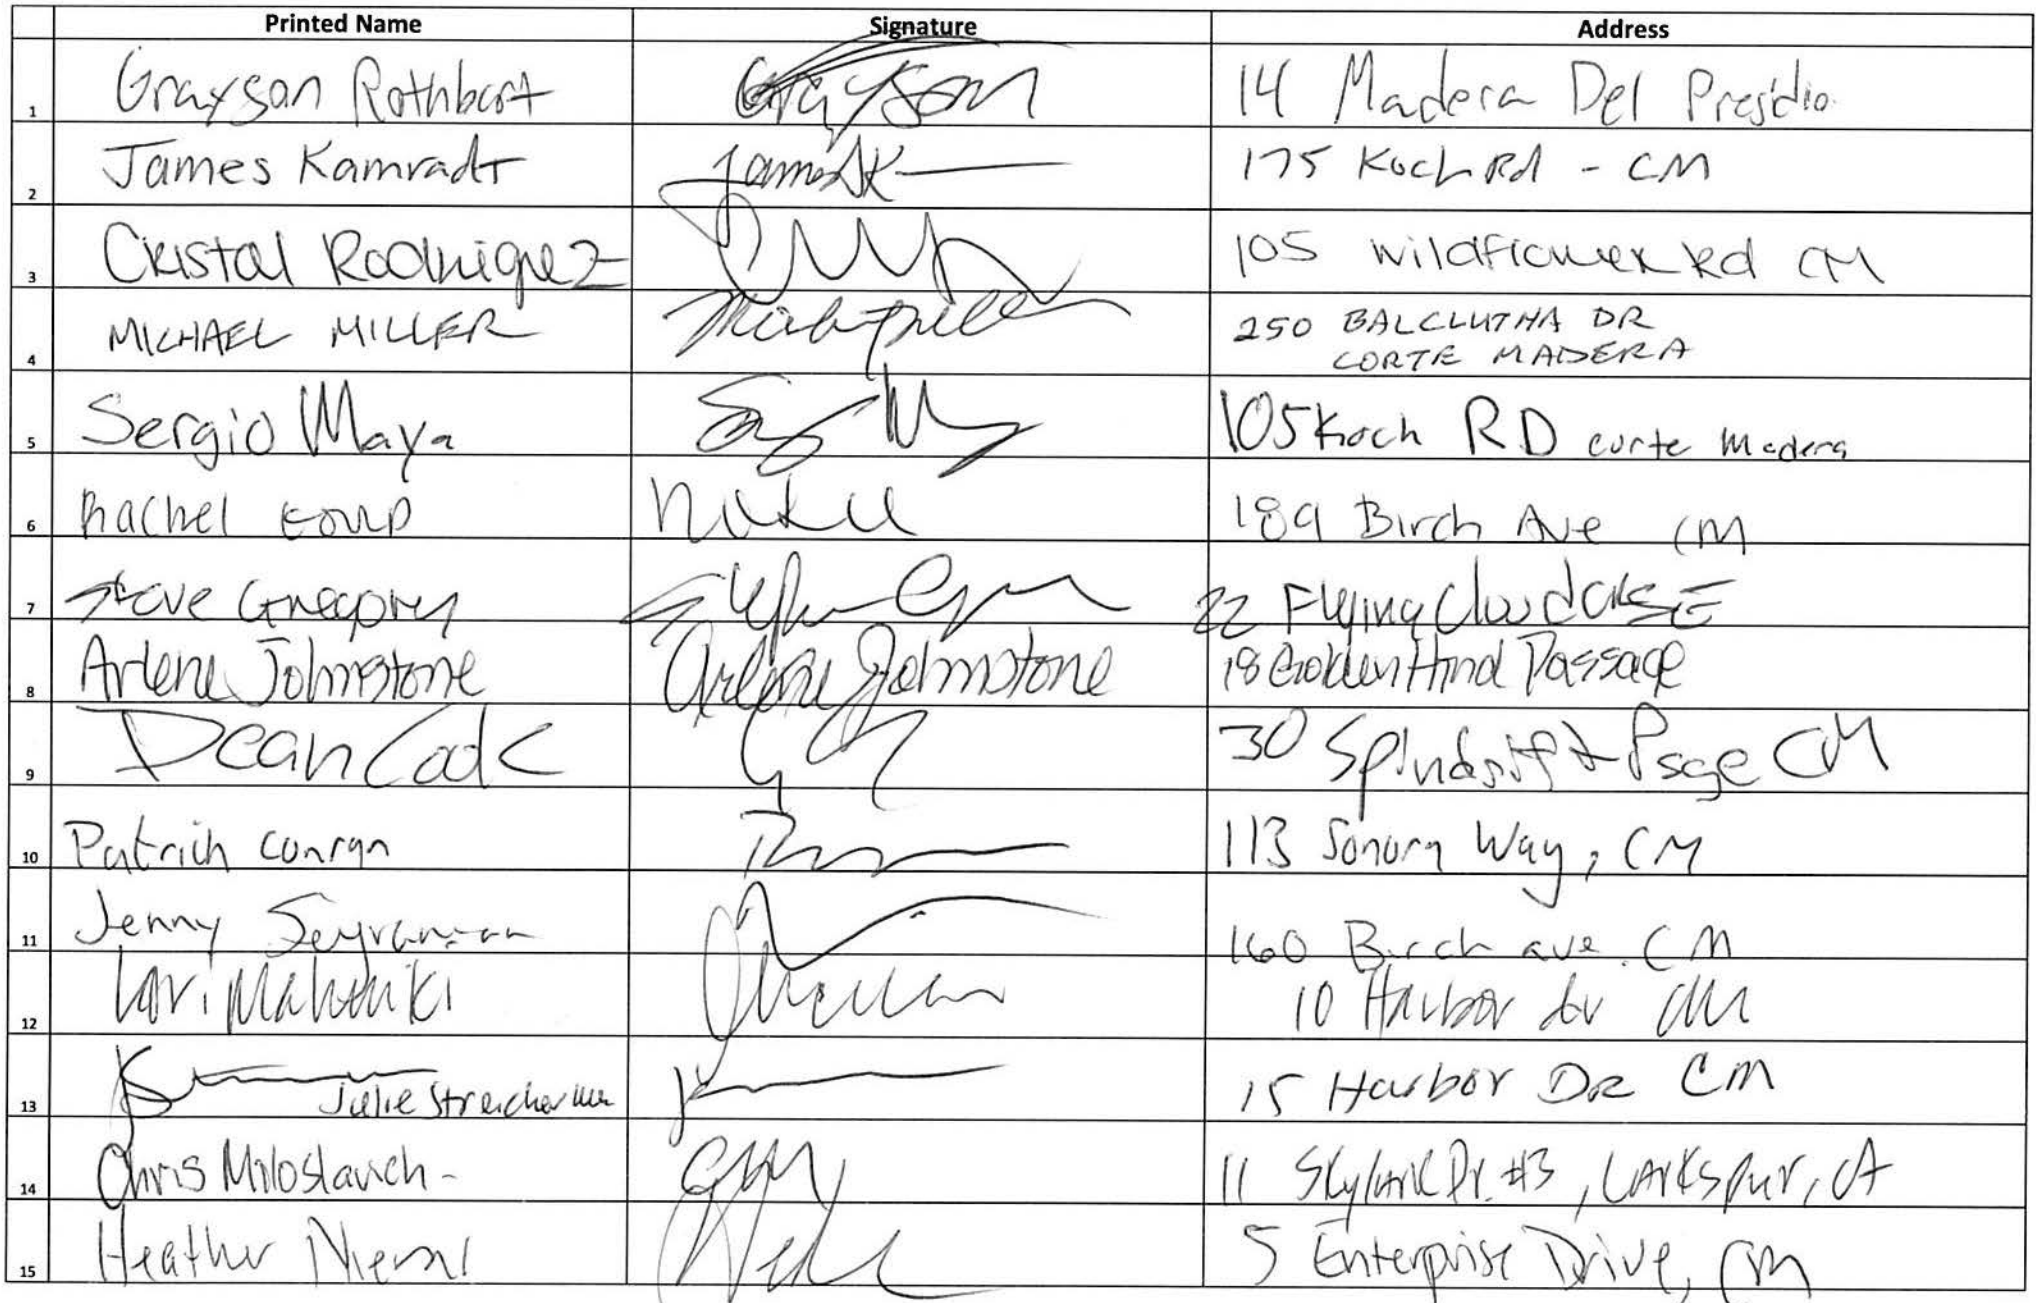 Printed Name Signature Address
1 Grayson Rothbart Grayson 14 Madera Del Presidio
2 James Kamradt James K 175 Koch Rd - CM
3 Cristal Rodriguez 105 Wildflower Rd CM
4 MICHAEL MILLER 250 BALCLUTHA DR
CORTE MADERA
5 Sergio Maya 105 Koch RD corte Madera
6 Rachel 189 Birch Ave CM
7 Steve Gregory 22 Flying Cloud CRSE
8 Arlene Johnstone Arlene Johnstone 18 Golden Hind Passage
9 Dean Cook 30 Spindrift Psge CM
10 Patrick Conran 113 Sonora Way, CM
11 Jenny 160 Birch ave. CM
12 Lori 10 Harbor dr CM
13 Julie 15 Harbor DR CM
14 Chris Miloslavich - 11 Skylark Dr. #3, Larkspur, CA
15 Heather 5 Enterprise Drive, CM